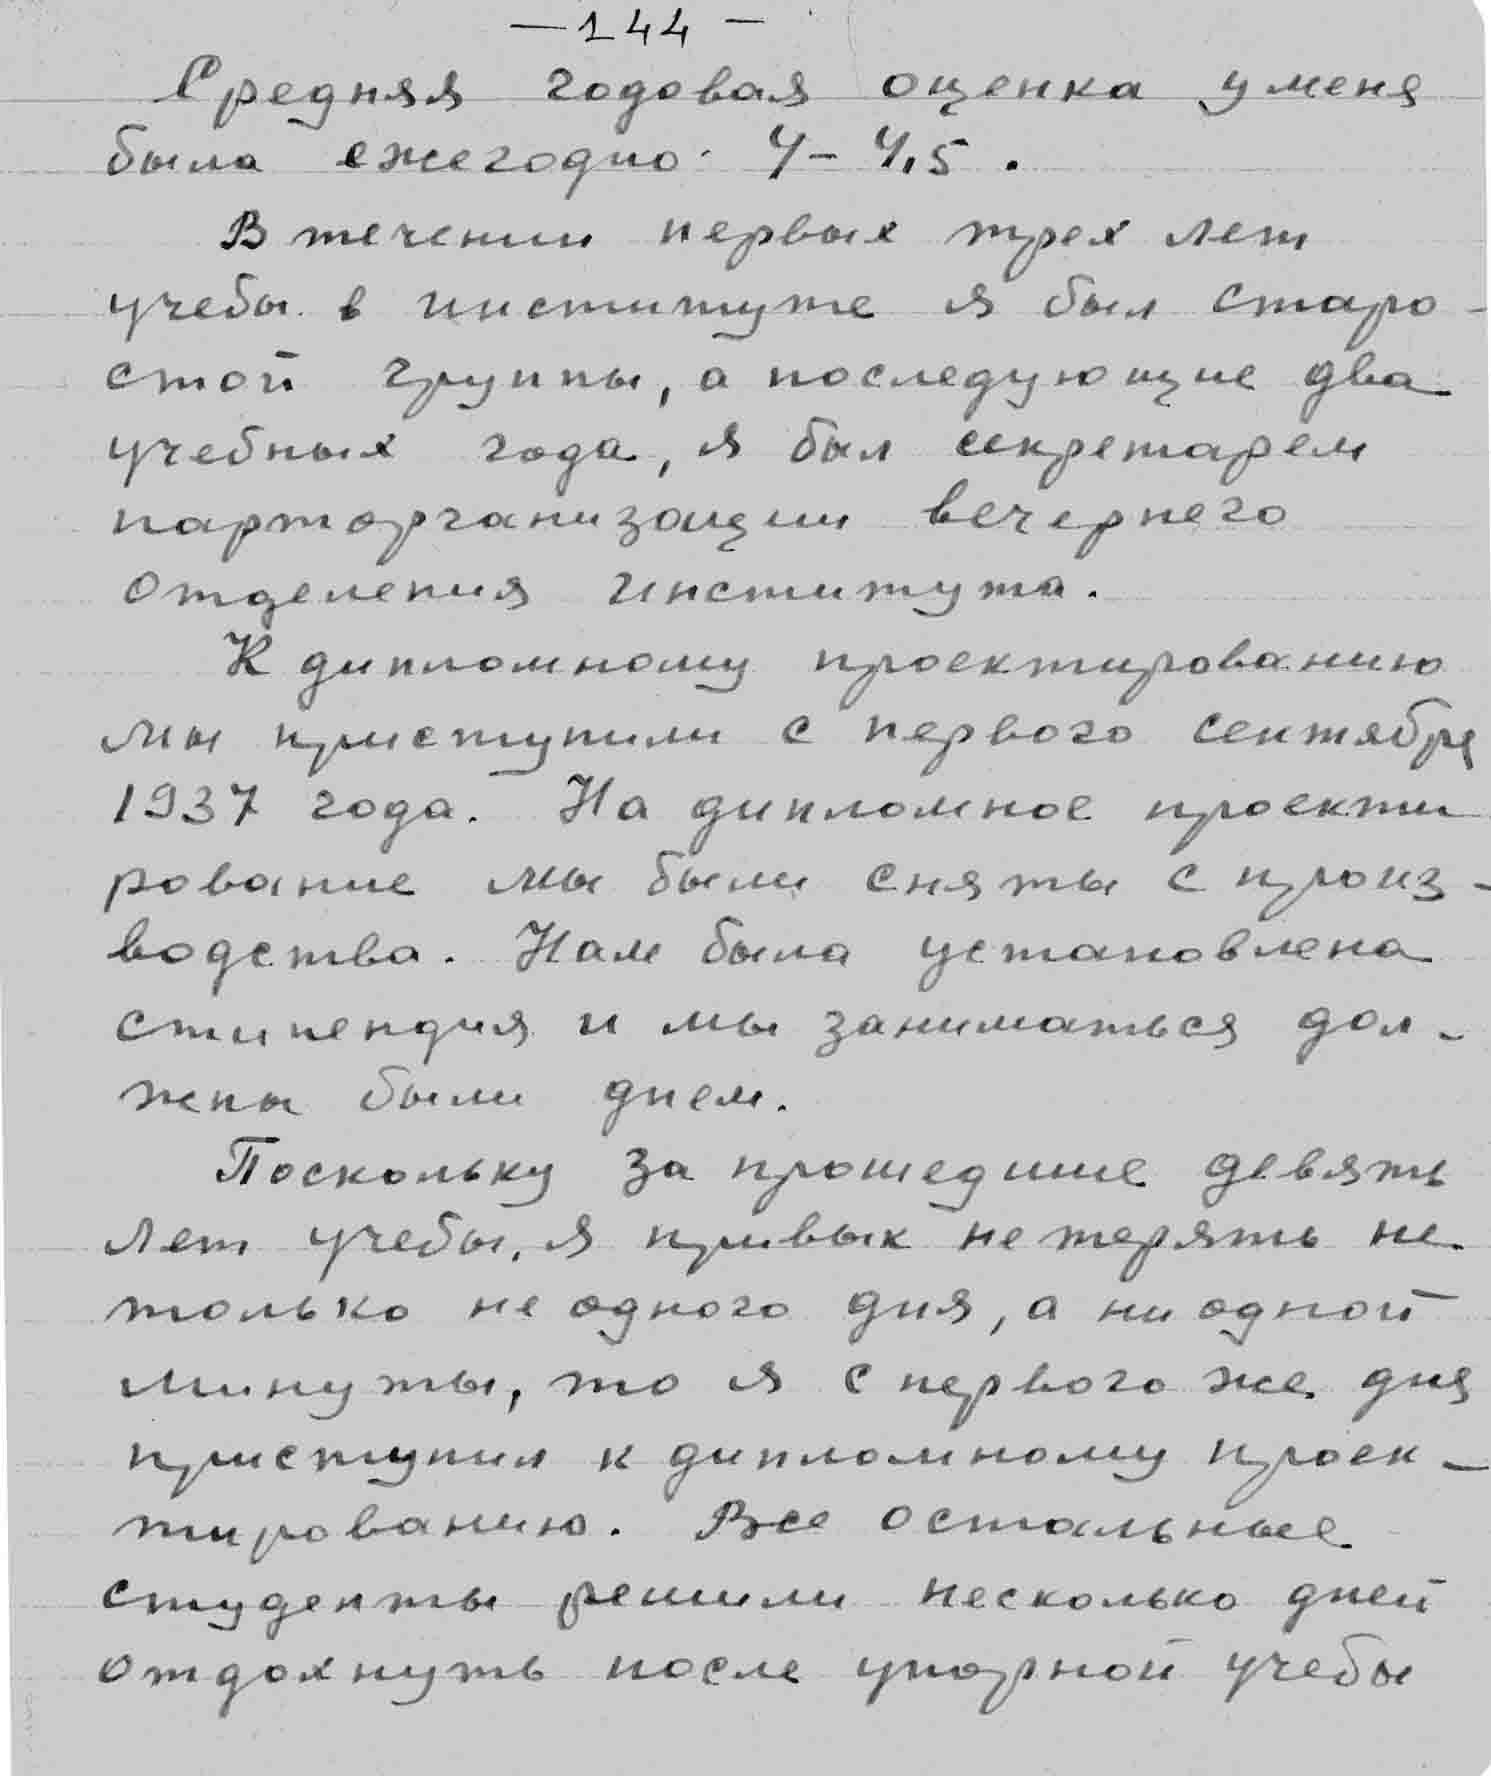 —144—
Средняя годовая оценка у меня
была ежегодно 4–4,5.
В течении первых трех лет
учебы в институте я был старо-
стой группы, а последующие два
учебных года, я был секретарем
парторганизации вечернего
отделения института.
К дипломному проектированию
мы приступили с первого сентября
1937 года. На дипломное проекти
рование мы были сняты с произ-
водства. Нам была установлена
стипендия и мы заниматься дол-
жны были днем.
Поскольку за прошедшие девять
лет учебы, я привык не терять не
только не одного дня, а ни одной
минуты, то я с первого же дня
приступил к дипломному проек-
тированию. Все остальные
студенты решили несколько дней
отдохнуть после упорной учебы